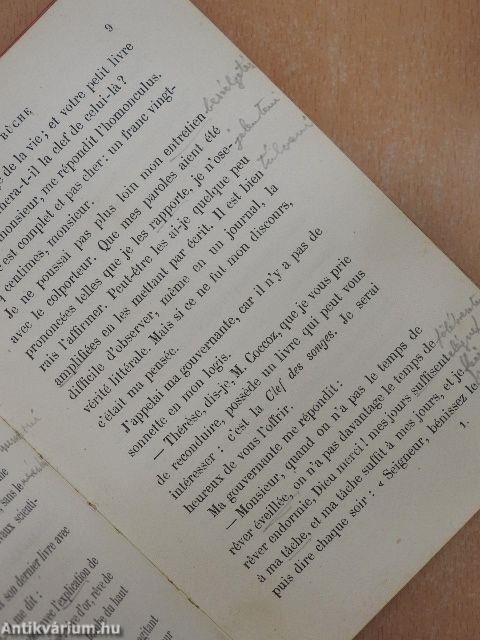 9
BÛCHE
de la vie ; et votre petit livre
-t-il la clef de celui-là ?
monsieur, me répondit l'homonculus.
est complet et pas cher : un franc vingt-
centimes, monsieur.
Je ne poussai pas plus loin mon entretien
avec le colporteur. Que mes paroles aient été
prononcées telles que je les rapporte, je n'ose-
rais l'affirmer. Peut-être les ai-je quelque peu
amplifiées en les mettant par écrit. Il est bien
difficile d'observer, même en un journal, la
vérité littérale. Mais si ce ne fut mon discours,
c'était ma pensée.
J'appelai ma gouvernante, car il n'y a pas de
sonnette en mon logis.
— Thérèse, dis-je, M. Coccoz, que je vous prie
de reconduire, possède un livre qui peut vous
intéresser : c'est la Clef des songes. Je serai
heureux de vous l'offrir.
Ma gouvernante me répondit :
— Monsieur, quand on n'a pas le temps de
rêver éveillée, on n'a pas davantage le temps de
rêver endormie. Dieu merci ! mes jours suffisent
à ma tâche, et ma tâche suffit à mes jours, et je
puis dire chaque soir : « Seigneur, bénissez le
1.
, sans le
raux scienti-
son dernier livre avec
l'explication de
que dit :
d'or, rêve de
du haut
agitant
Antikvárium.hu